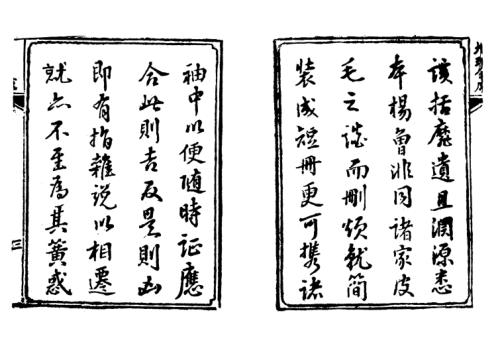 該括靡遺且淵源悉
本楊曾非同諸家皮
毛之談而刪煩就簡
裝成短冊更可攜諸
袖中以便隨時証應
合此則吉反是則凶
即有指雜說以相遷
就亦不至為其簧惑